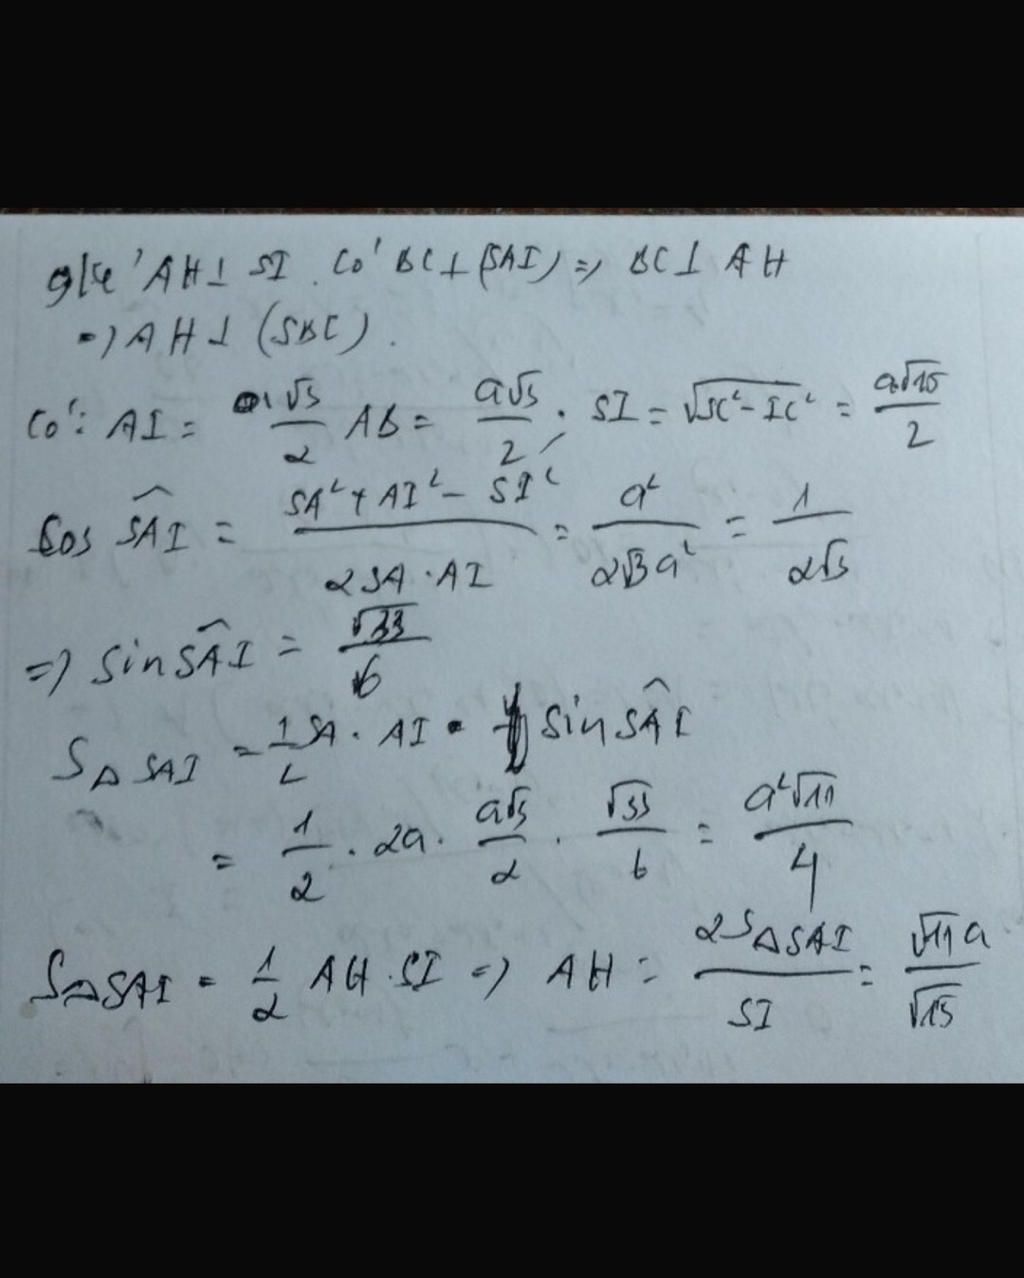 giả AH ⊥ SI. Có BC ⊥ (SAI) => BC ⊥ AH
=) AH ⊥ (SBC).
Có: AI = √3/2 AB = a√3/2. SI = √(SC² - IC²) = a√15/2
Cos SAI = (SA² + AI² - SI²)/(2SA.AI) = a²/(2√3a²) = 1/(2√3)
=) sin SAI = √33/6
S△SAI = 1/2 SA. AI. sin SAI
= 1/2 . 2a. a√3/2 . √33/6 = a²√11/4
S△SAI = 1/2 AH.SI => AH = 2S△SAI/SI = √11a/√15